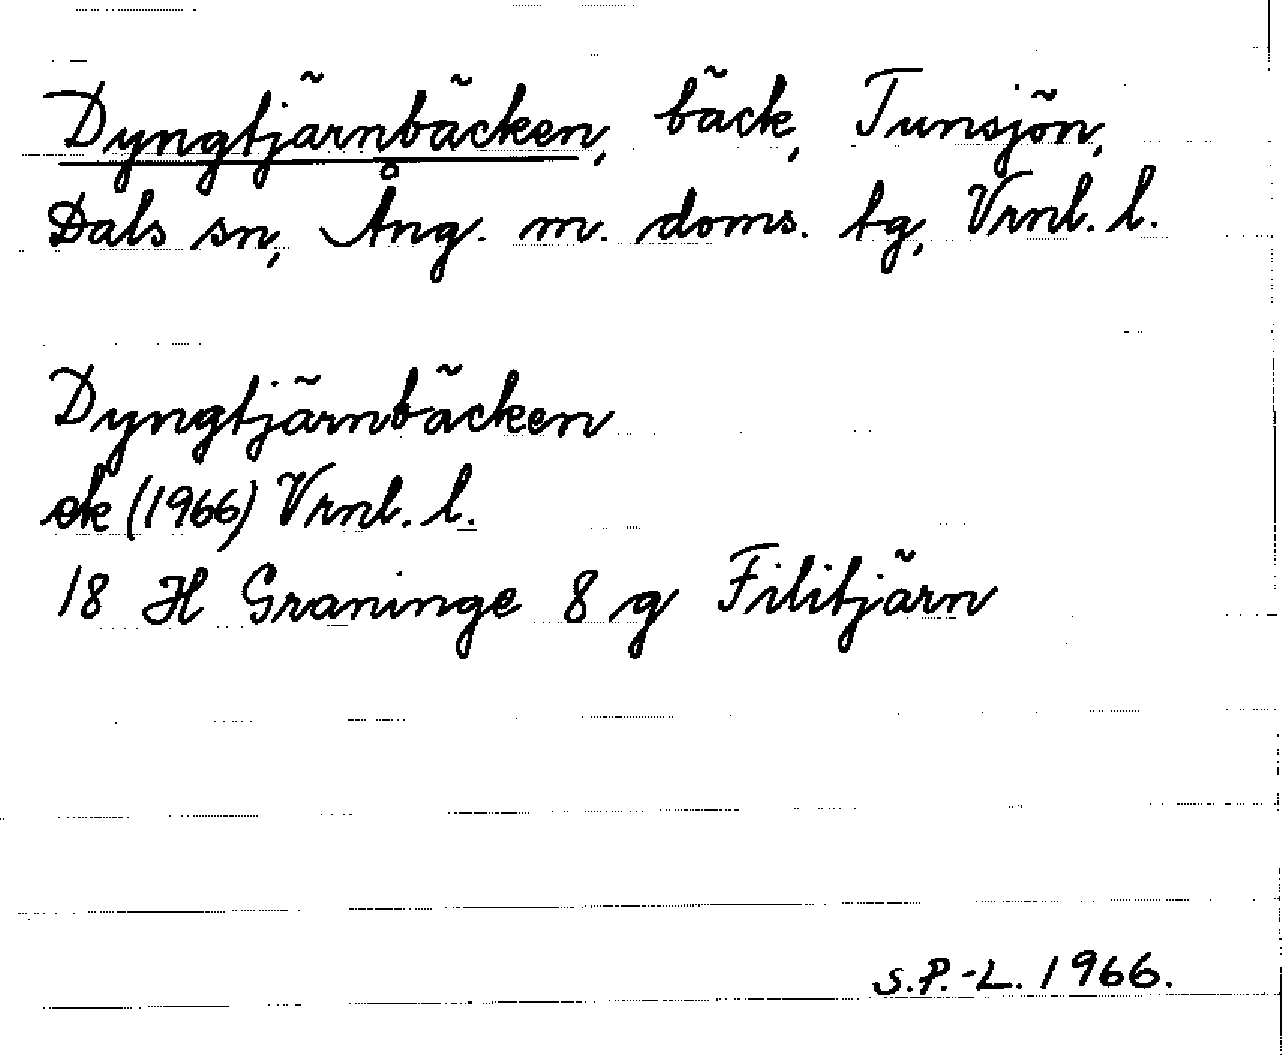 Dyngtjärnbäcken, bäck, Tunsjön,
Dals sn, Ång. m. doms. tg, Vrnl. l.
Dyngtjärnbäcken
ek (1966) Vrnl. l.
18 H Graninge 8 g Filitjärn
S.P.-L. 1966.